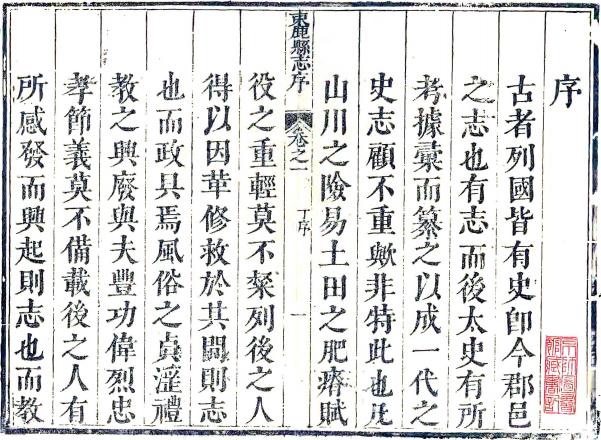 序
古者列國皆有史卽今郡邑
之志也有志而後太史有所
考據彙而纂之以成一代之
史志顧不重歟非特此也凡
山川之險易土田之肥瘠賦
束鹿縣志序
卷之一
丁序
一
役之重輕莫不粲列後之人
得以因革修救於其闕則志
也而政具焉風俗之貞淫禮
教之興廢與夫豐功偉烈忠
孝節義莫不備載後之人有
所感發而興起則志也而教